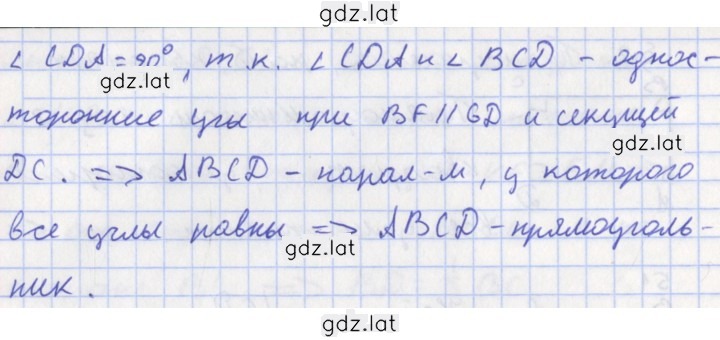 gdz.lat
∠ CDA = 90°, т.к. ∠ CDA и ∠ BCD - однос-
gdz.lat
торонние углы при BF || GD и секущей
DC. => ABCD - парал-м, у которого
все углы равны => ABCD - прямоуголь-
gdz.lat
ник.
gdz.lat